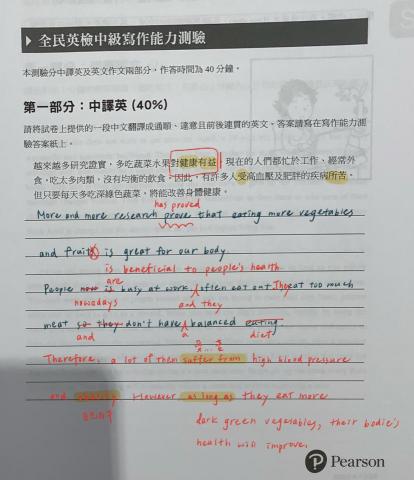 全民英檢中級寫作能力測驗
本測驗分中譯英及英文作文兩部分，作答時間為 40 分鐘。
第一部分：中譯英 (40%)
請將試卷上提供的一段中文翻譯成通順、達意且前後連貫的英文。答案請寫在寫作能力測
驗答案紙上。
越來越多研究證實，多吃蔬菜水果對健康有益。現在的人們都忙於工作、經常外
食，吃太多肉類，沒有均衡的飲食。因此，有許多人受高血壓及肥胖的疾病所苦。
但只要每天多吃深綠色蔬菜，將能改善身體健康。
has proved
More and more research prove that eating more vegetables
and fruits is great for our body.
is beneficial to people's health.
are
People now is busy at work, often eat out. They eat too much
nowadays
and they
meat so they don't have balanced eating.
and
a
diet
Therefore, a lot of them suffer from high blood pressure
and obesity. However as long as they eat more
dark green vegetables, their bodie's
health will improve.
Pearson